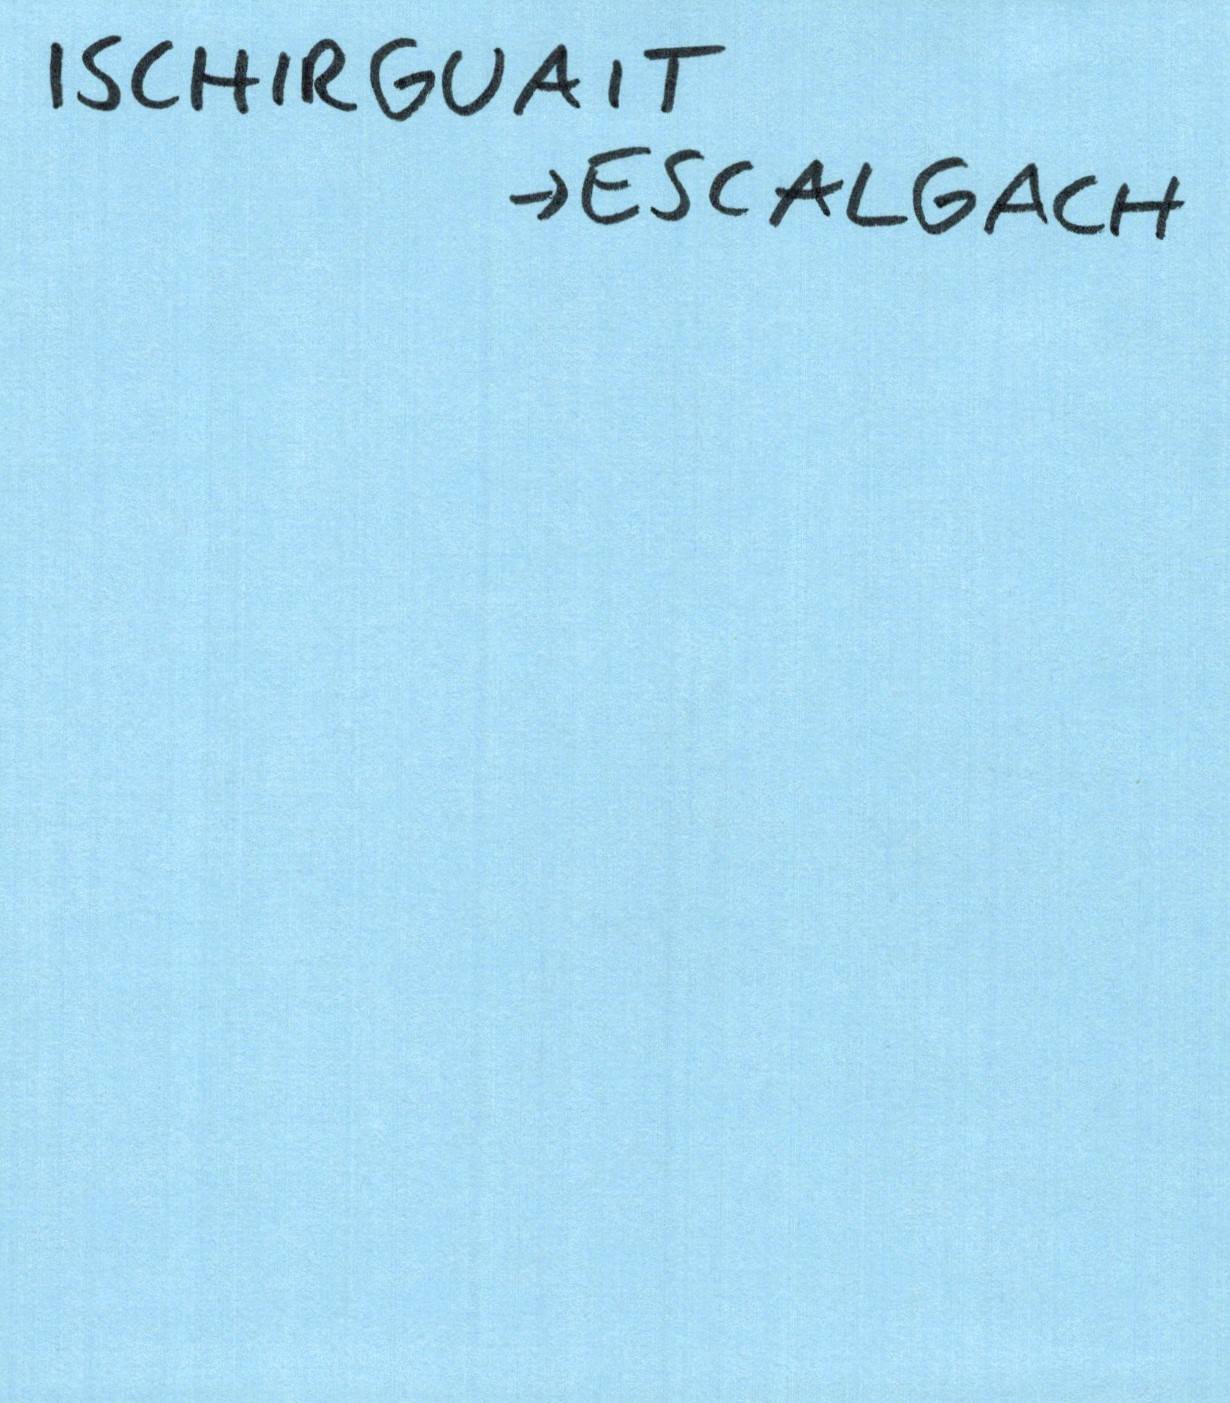 ISCHIRGUAIT
→ESCALGACH